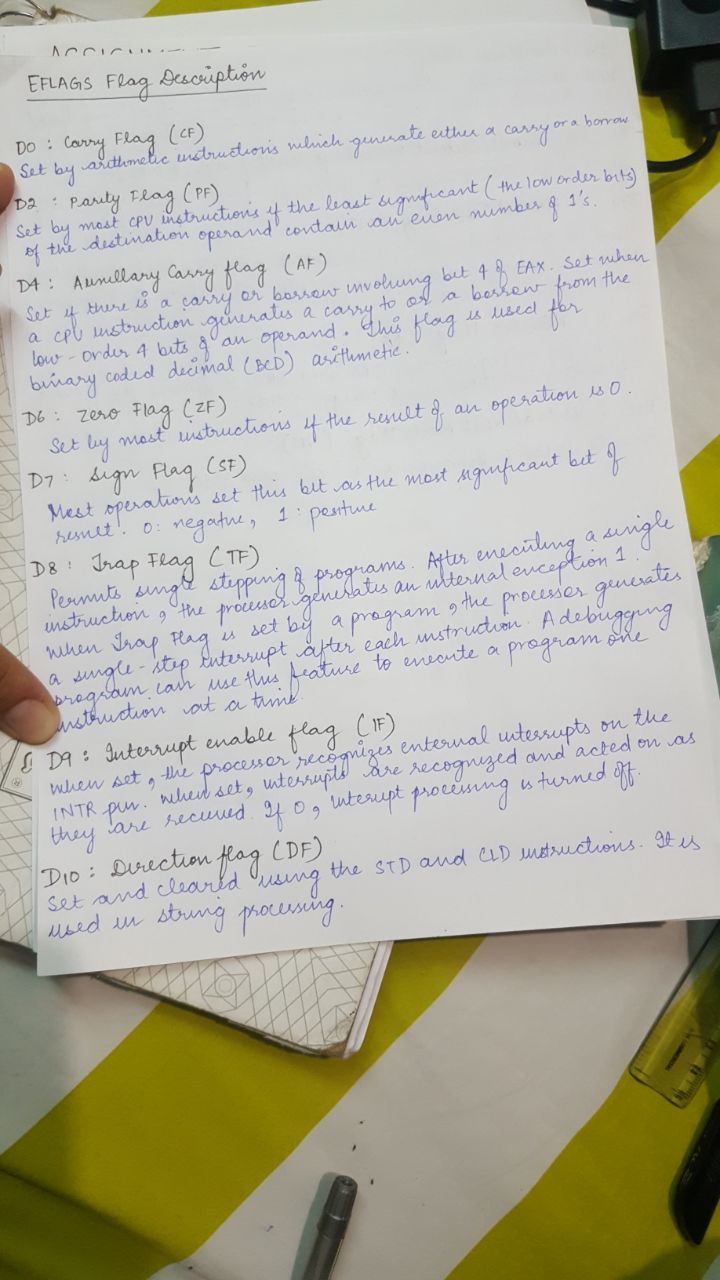 EFLAGS Flag Description
D0 : Carry Flag (CF)
Set by arithmetic instructions which generate either a carry or a borrow
D2 : Parity Flag (PF)
Set by most CPU instructions if the least significant (the low order bits)
of the destination operand contain an even number of 1's.
D4 : Auxillary Carry flag (AF)
Set if there is a carry or borrow involving bit 4 of EAX. Set when
a CPU instruction generates a carry to or a borrow from the
low-order 4 bits of an operand. This flag is used for
binary coded decimal (BCD) arithmetic.
D6 : Zero Flag (ZF)
Set by most instructions if the result of an operation is 0.
D7 : Sign Flag (SF)
Most operations set this bit as the most significant bit of
result. 0: negative, 1: positive
D8 : Trap Flag (TF)
Permits single stepping of programs. After executing a single
instruction, the processor generates an internal exception 1.
When Trap Flag is set by a program, the processor generates
a single-step interrupt after each instruction. A debugging
program can use this feature to execute a program one
instruction at a time.
D9 : Interrupt enable flag (IF)
When set, the processor recognizes external interrupts on the
INTR pin. When set, interrupts are recognized and acted on as
they are recieved. If 0, interupt processing is turned off.
D10 : Direction flag (DF)
Set and cleared using the STD and CLD instructions. It is
used in string processing.